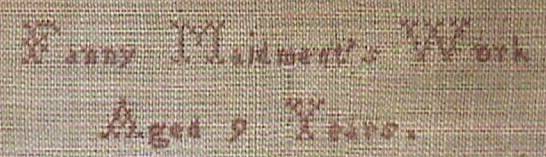 Fanny Maidment's Work
Aged 9 Years.